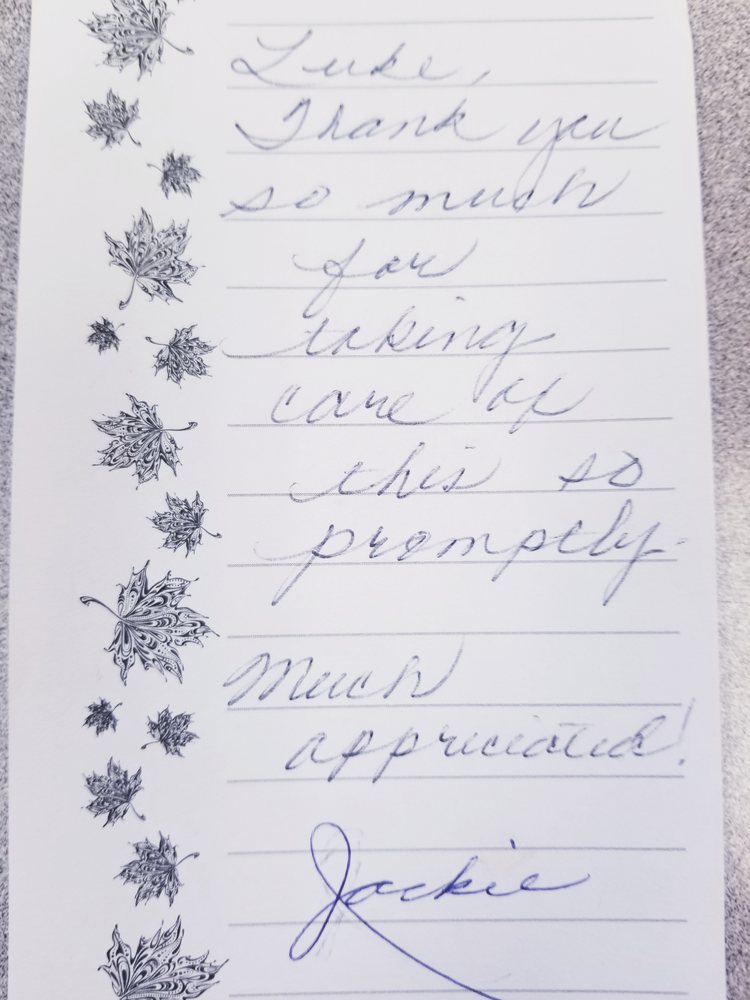 Luke,
Thank you
so much
for
taking
care of
this so
promptly.
Much
appreciated!
Jackie